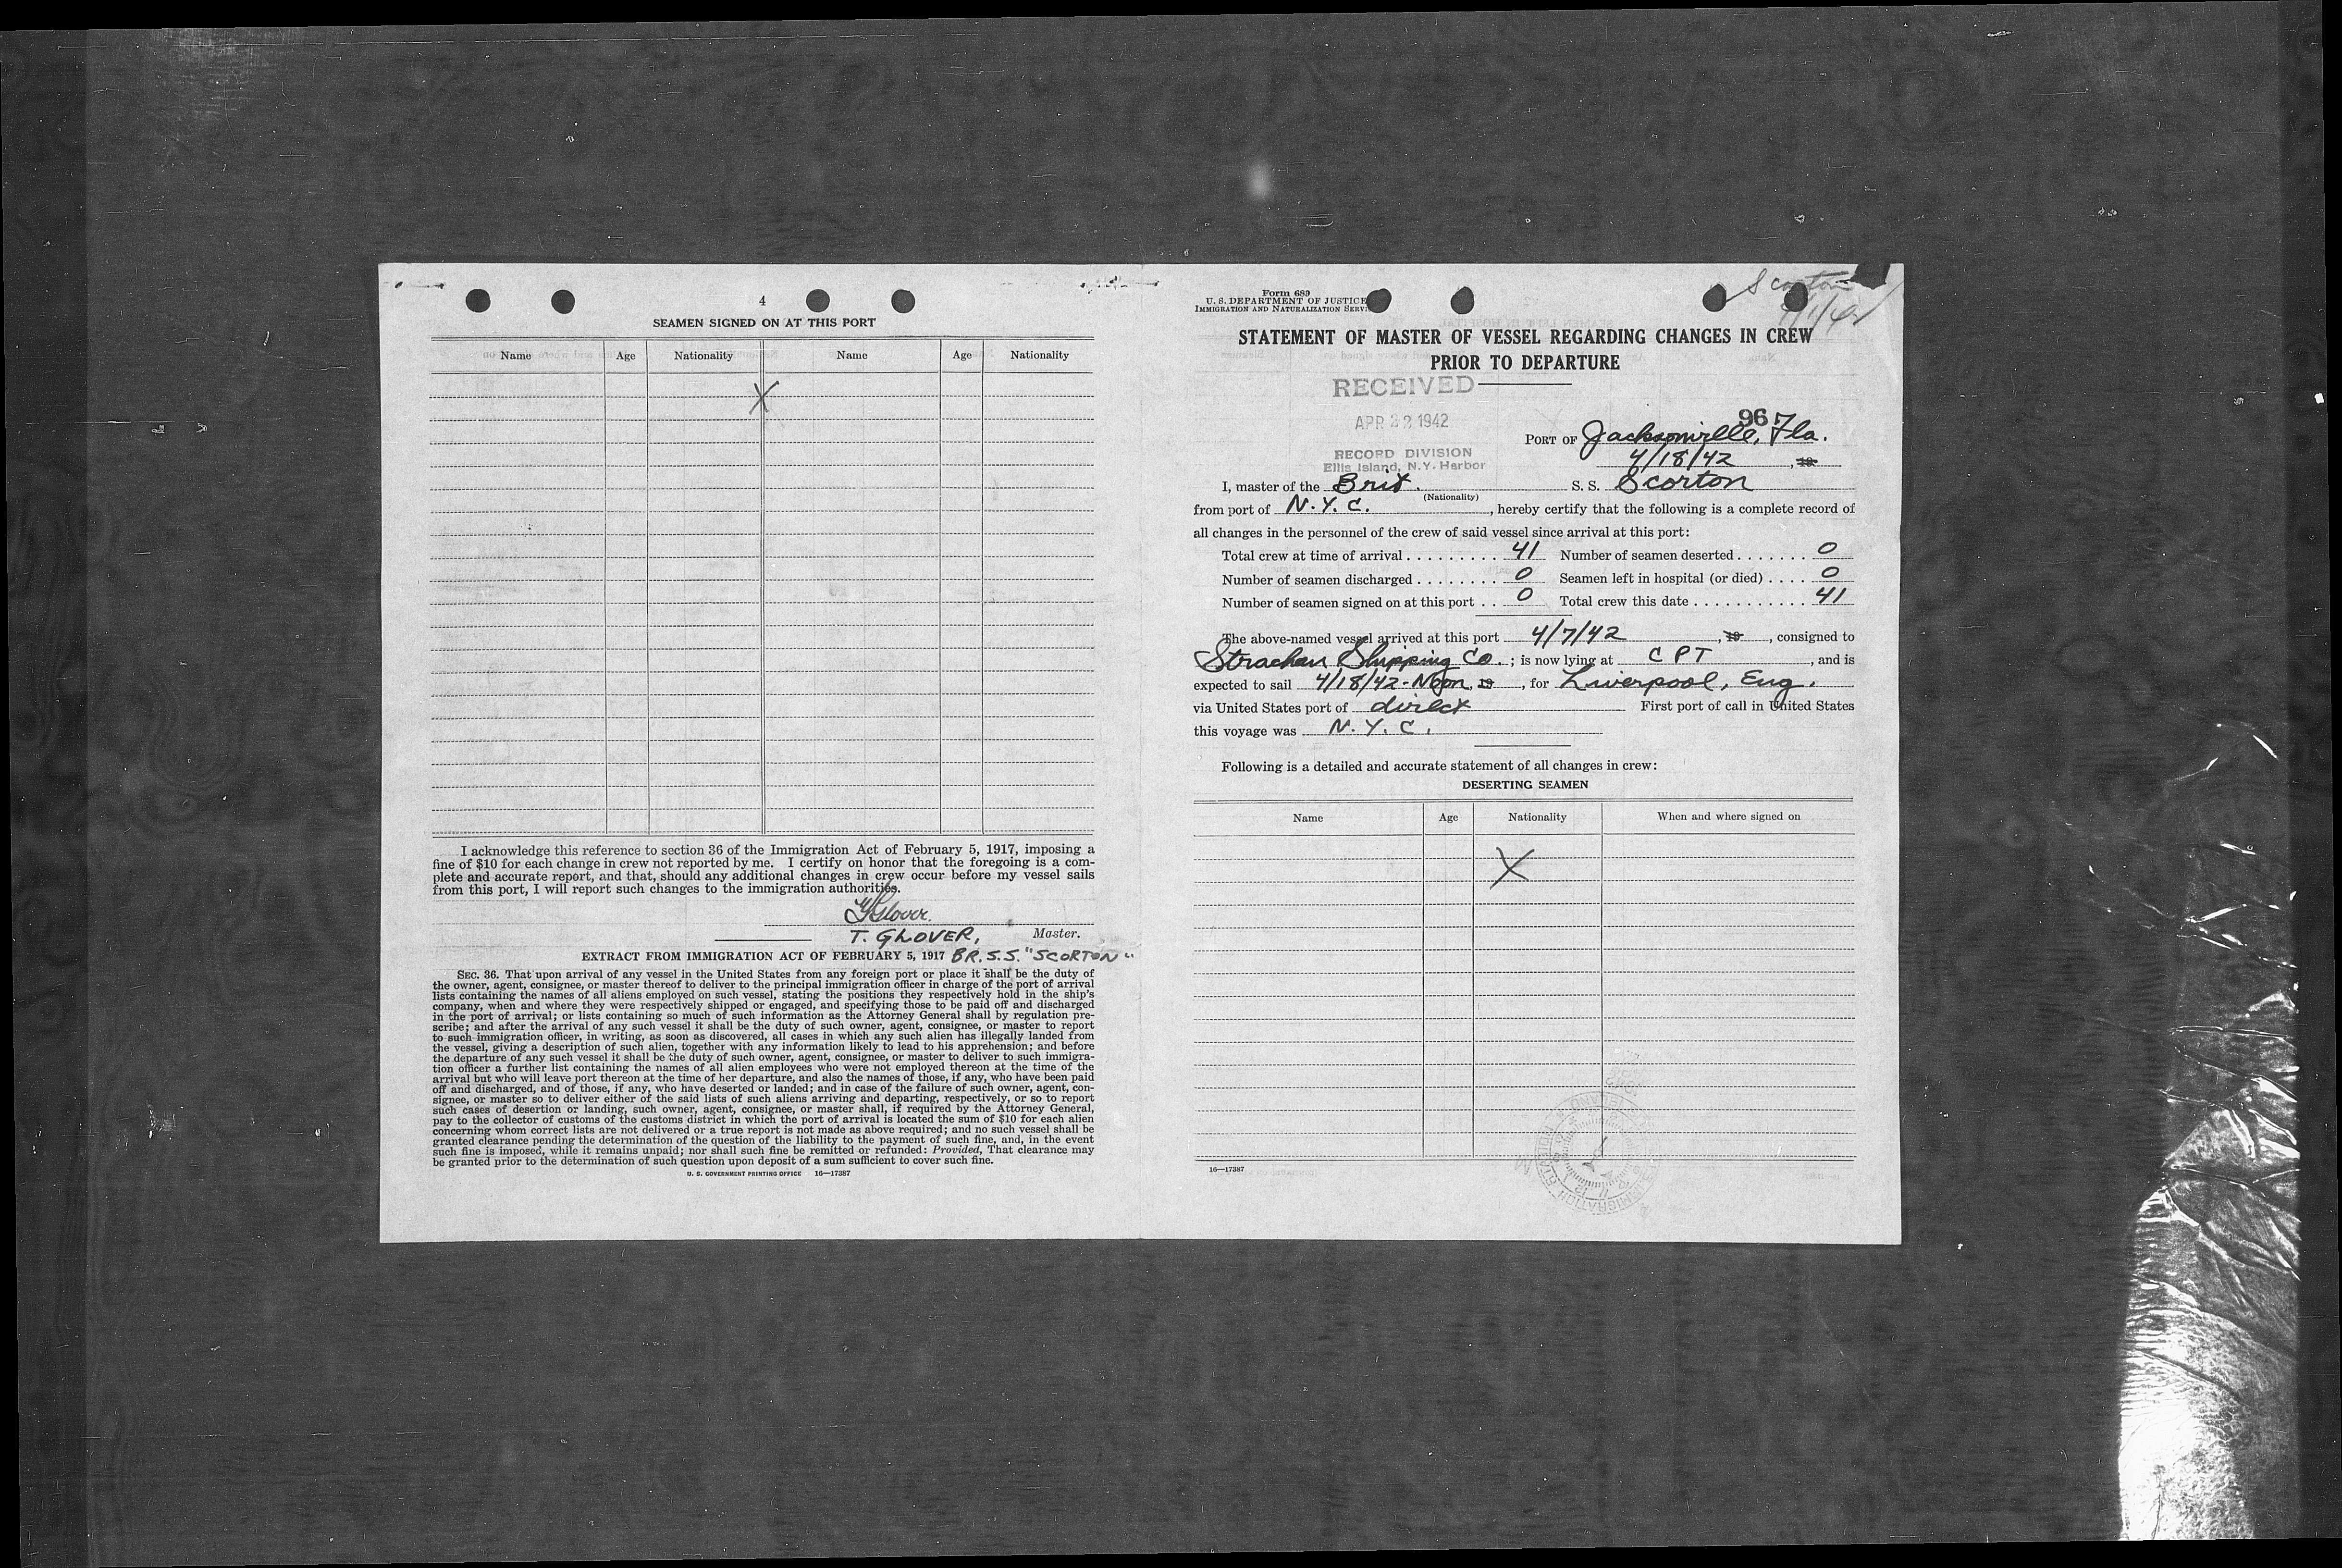 4
SEAMEN SIGNED ON AT THIS PORT
Name Age Nationality Name Age Nationality
X
I acknowledge this reference to section 36 of the Immigration Act of February 5, 1917, imposing a
fine of $10 for each change in crew not reported by me. I certify on honor that the foregoing is a com-
plete and accurate report, and that, should any additional changes in crew occur before my vessel sails
from this port, I will report such changes to the immigration authorities.
T Glover.
T. GLOVER, Master.
EXTRACT FROM IMMIGRATION ACT OF FEBRUARY 5, 1917 BR. S.S. "SCORTON"
SEC. 36. That upon arrival of any vessel in the United States from any foreign port or place it shall be the duty of
the owner, agent, consignee, or master thereof to deliver to the principal immigration officer in charge of the port of arrival
lists containing the names of all aliens employed on such vessel, stating the positions they respectively hold in the ship's
company, when and where they were respectively shipped or engaged, and specifying those to be paid off and discharged
in the port of arrival; or lists containing so much of such information as the Attorney General shall by regulation pre-
scribe; and after the arrival of any such vessel it shall be the duty of such owner, agent, consignee, or master to report
to such immigration officer, in writing, as soon as discovered, all cases in which any such alien has illegally landed from
the vessel, giving a description of such alien, together with any information likely to lead to his apprehension; and before
the departure of any such vessel it shall be the duty of such owner, agent, consignee, or master to deliver to such immigra-
tion officer a further list containing the names of all alien employees who were not employed thereon at the time of the
arrival but who will leave port thereon at the time of her departure, and also the names of those, if any, who have been paid
off and discharged, and of those, if any, who have deserted or landed; and in case of the failure of such owner, agent, con-
signee, or master so to deliver either of the said lists of such aliens arriving and departing, respectively, or so to report
such cases of desertion or landing, such owner, agent, consignee, or master shall, if required by the Attorney General,
pay to the collector of customs of the customs district in which the port of arrival is located the sum of $10 for each alien
concerning whom correct lists are not delivered or a true report is not made as above required; and no such vessel shall be
granted clearance pending the determination of the question of the liability to the payment of such fine, and, in the event
such fine is imposed, while it remains unpaid; nor shall such fine be remitted or refunded: Provided, That clearance may
be granted prior to the determination of such question upon deposit of a sum sufficient to cover such fine.
U. S. GOVERNMENT PRINTING OFFICE 16—17387
Scorton
Form 689
U. S. DEPARTMENT OF JUSTICE
IMMIGRATION AND NATURALIZATION SERVI
STATEMENT OF MASTER OF VESSEL REGARDING CHANGES IN CREW
PRIOR TO DEPARTURE
RECEIVED
APR 22 1942
RECORD DIVISION
Ellis Island, N.Y. Harbor
96
PORT OF Jacksonville, Fla.
4/18/42, 19
I, master of the Brit. S. S. Scorton
(Nationality)
from port of N.Y.C., hereby certify that the following is a complete record of
all changes in the personnel of the crew of said vessel since arrival at this port:
Total crew at time of arrival 41 Number of seamen deserted 0
Number of seamen discharged 0 Seamen left in hospital (or died) 0
Number of seamen signed on at this port 0 Total crew this date 41
The above-named vessel arrived at this port 4/7/42, 19, consigned to
Strachan Shipping Co.; is now lying at CPT, and is
expected to sail 4/18/42-Noon, 19, for Liverpool, Eng.
via United States port of direct First port of call in United States
this voyage was N.Y.C.
Following is a detailed and accurate statement of all changes in crew:
DESERTING SEAMEN
Name Age Nationality When and where signed on
X
16—17387